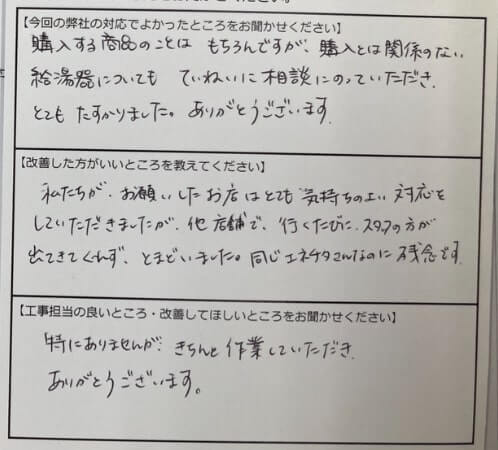 【今回の弊社の対応でよかったところをお聞かせください】
購入する商品のことは もちろんですが、購入とは関係のない
給湯器についても ていねいに相談にのっていただき、
とても たすかりました。ありがとうございます。
【改善した方がいいところを教えてください】
私たちが、お願いしたお店はとても 気持ちのよい 対応を
していただきましたが、他店舗で、行くたびに、スタッフの方が
出てきてくれず、とまどいました。同じエネチタさんなのに 残念です。
【工事担当の良いところ・改善してほしいところをお聞かせください】
特にありませんが、きちんと作業していただき、
ありがとうございます。